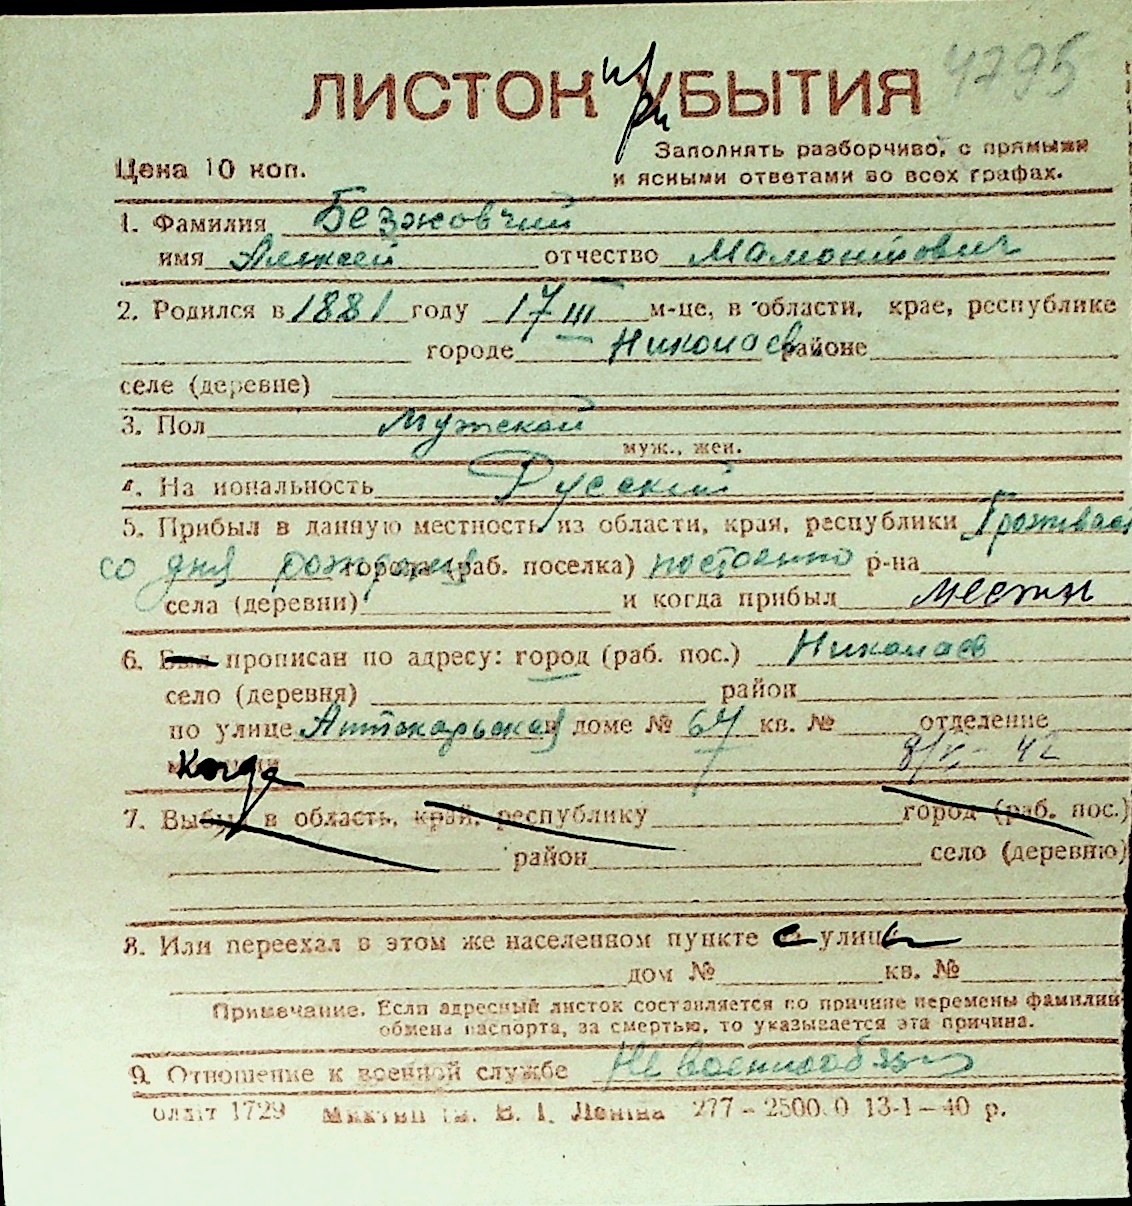 4795
ЛИСТОК УБЫТИЯ
при
Заполнять разборчиво, с прямыми
Цена 10 коп.
и ясными ответами во всех графах.
1. Фамилия Безжовчий
имя Алексей отчество Мамонтович
2. Родился в 1881 году 17 III м-це, в области, крае, республике
городе Николаев районе
селе (деревне)
3. Пол Мужской
муж., жен.
4. На иональность Русский
5. Прибыл в данную местность из области, края, республики Проживает
со дня рождения города (раб. поселка) постоянно р-на
села (деревни) и когда прибыл местн
6. Был прописан по адресу: город (раб. пос.) Николаев
село (деревня) район
по улице Аптекарьская доме № 64 кв. № отделение
Когда 8/X - 42
7. Выбыл в область, край, республику город (раб. пос.)
район село (деревню)
8. Или переехал в этом же населенном пункте с улицы
дом № кв. №
Примечание. Если адресный листок составляется по причине перемены фамилии
обмена паспорта, за смертью, то указывается эта причина.
9. Отношение к военной службе Не военнообяз
1729 В. І. Леніна 277 – 2500.0 13-1 – 40 р.